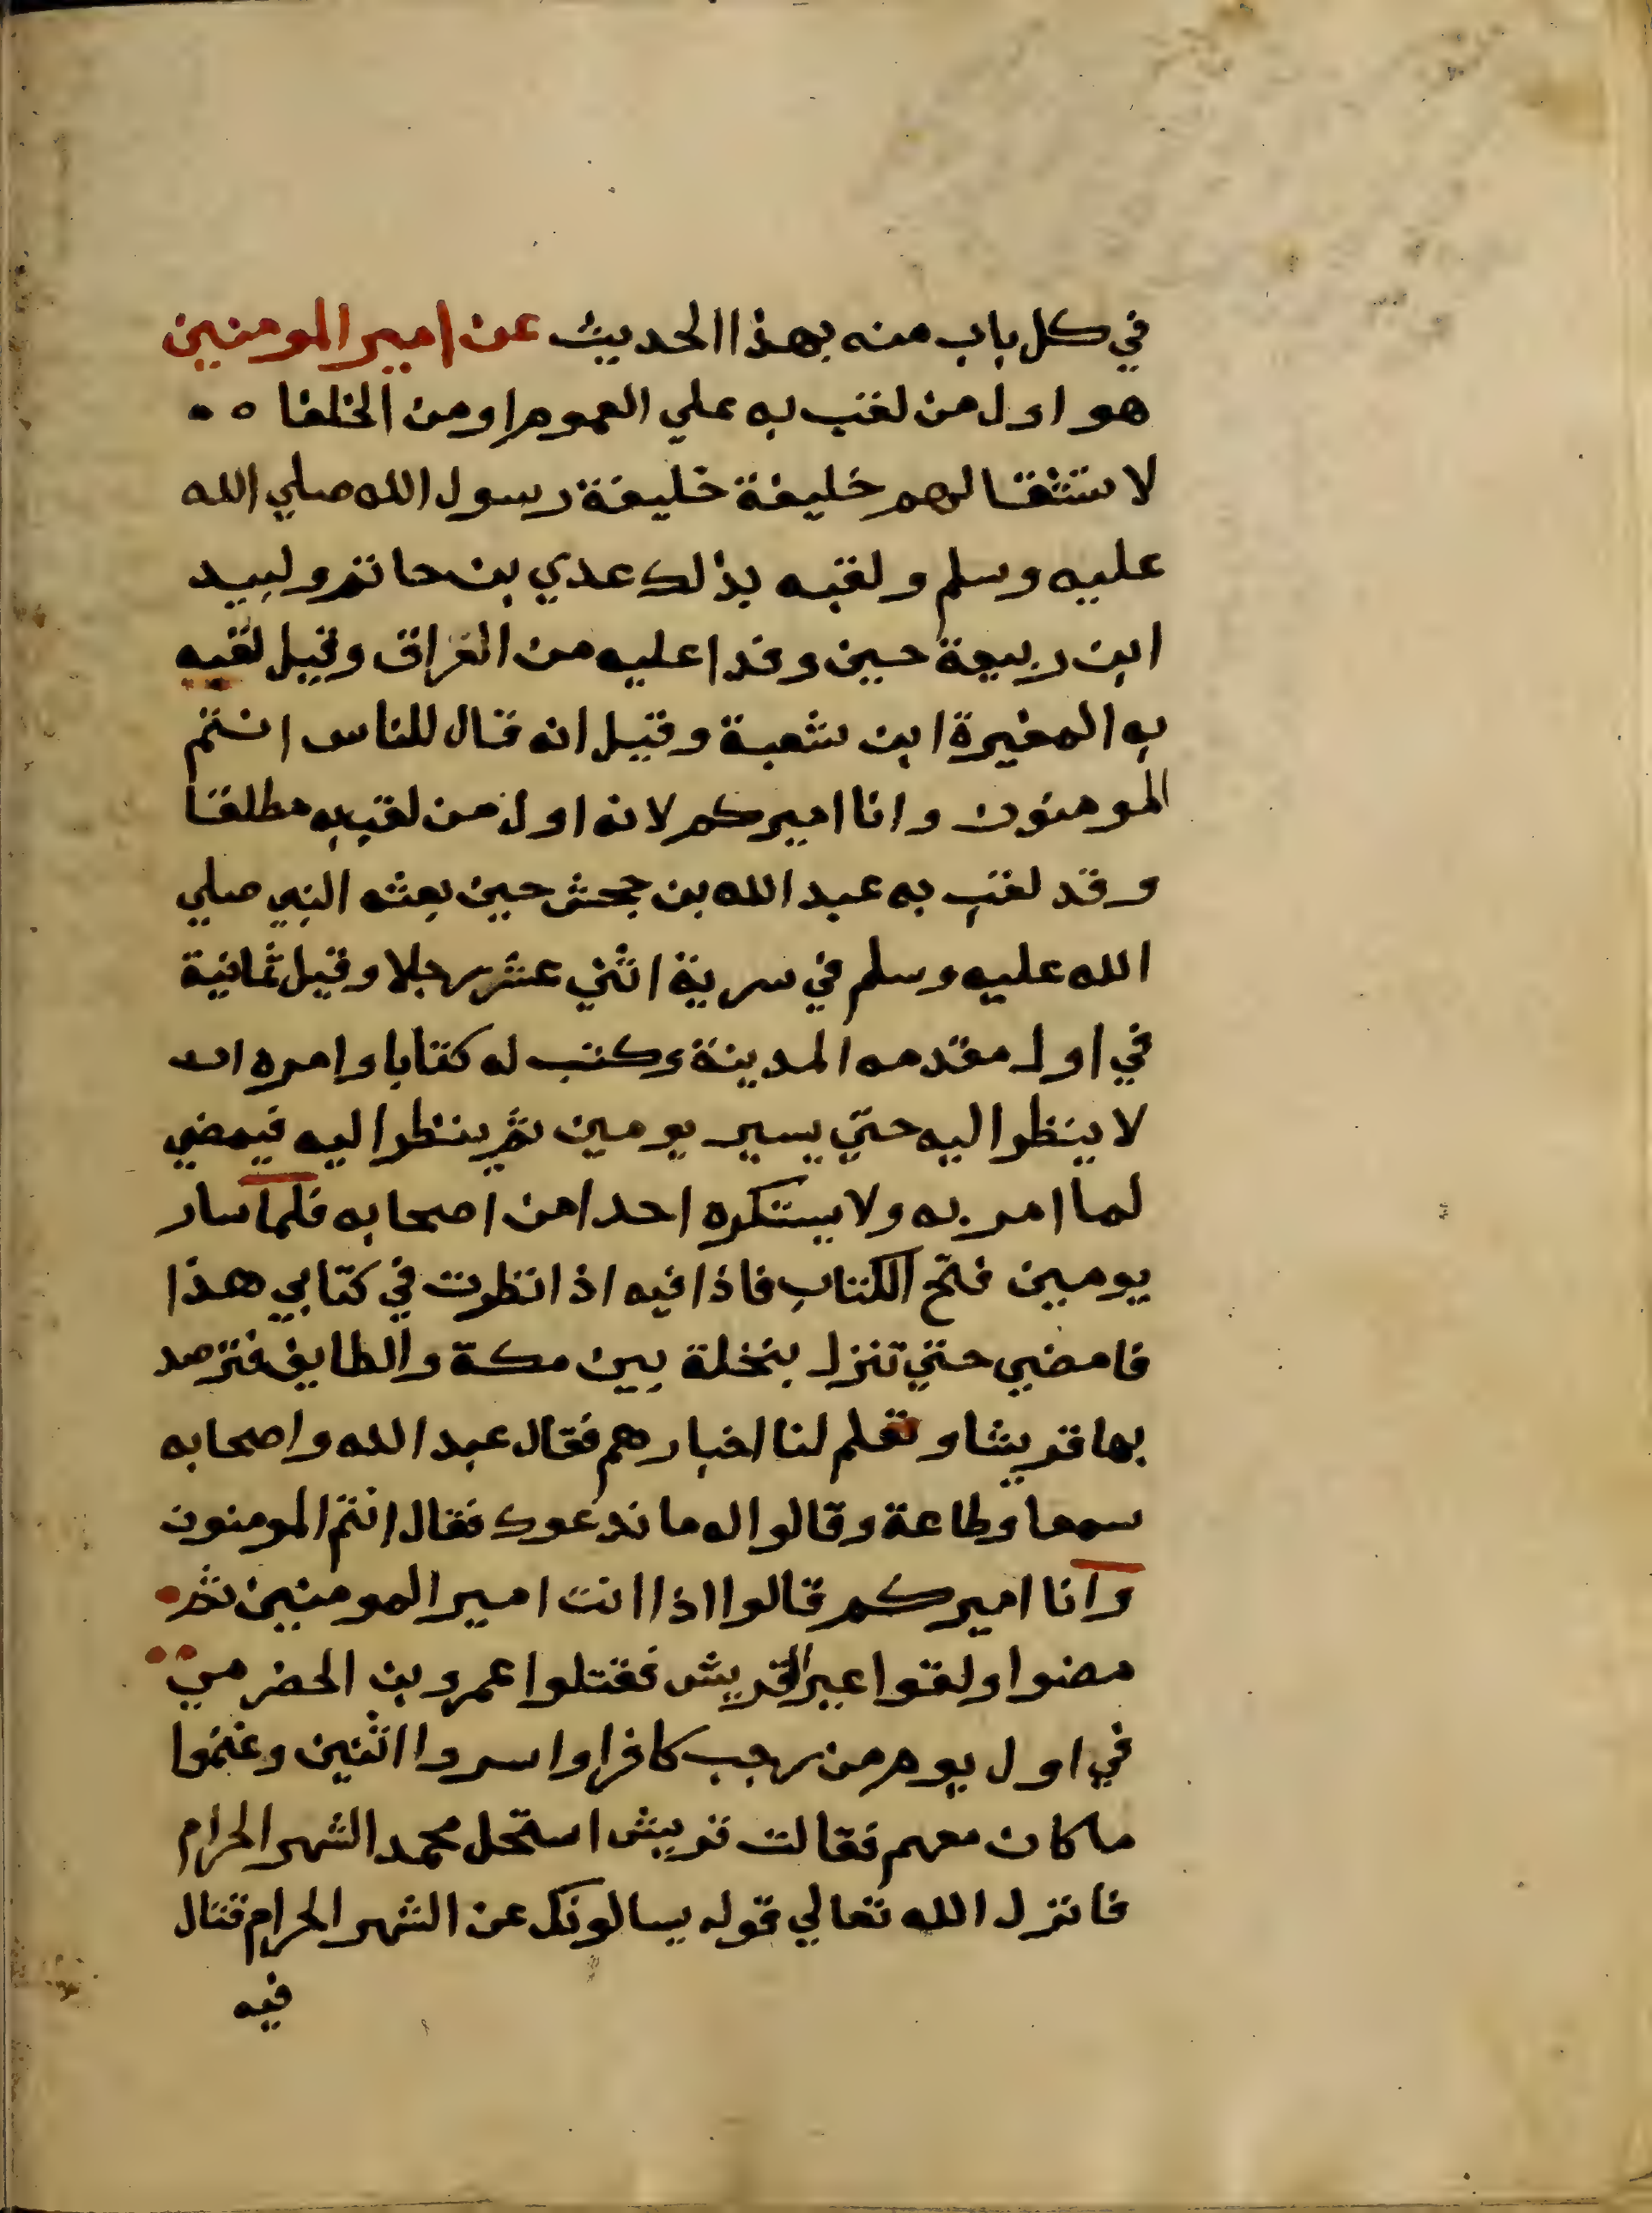 في كل باب منه بهذا الحديث عن امير المومنين
هو اول من لقب به علي العموم او من الخلفا
لاستثقالهم خليفة خليفة رسول الله صلي الله
عليه وسلم ولقبه بذلك عدي بن حاتم ولبيد
ابن ربيعة حين وفدا عليه من العراق وقيل لقبه
به المغيرة ابن شعبة وقيل انه قال للناس انتم
المومنون وانا اميركم لانه اول من لقب به مطلقا
وقد لقب به عبد الله بن جحش حين بعثه النبي صلي
الله عليه وسلم في سرية اثني عشر رجلا وقيل ثمانية
في اول مقدمه المدينة وكتب له كتابا وامره ان
لا ينظر اليه حتي يسير يومين ثم ينظر اليه فيمضي
لما امر به ولا يستكره احدا من اصحابه فلما سار
يومين فتح الكتاب فاذا فيه اذا نظرت في كتابي هذا
فامضي حتي تنزل بنخلة بين مكة والطايف فترصد
بها قريشا وتعلم لنا اخبارهم فقال عبد الله واصحابه
سمعا وطاعة وقالوا له ما ندعوك فقال انتم المومنون
وانا اميركم قالوا اذا انت امير المومنين ثم
مضوا ولقوا عير القريش فقتلوا عمرو بن الحضرمي
في اول يوم من رجب كافرا واسروا اثنين وغنموا
ما كان معهم فقالت قريش استحل محمد الشهر الحرام
فانزل الله تعالي قوله يسالونك عن الشهر الحرام قتال
فيه